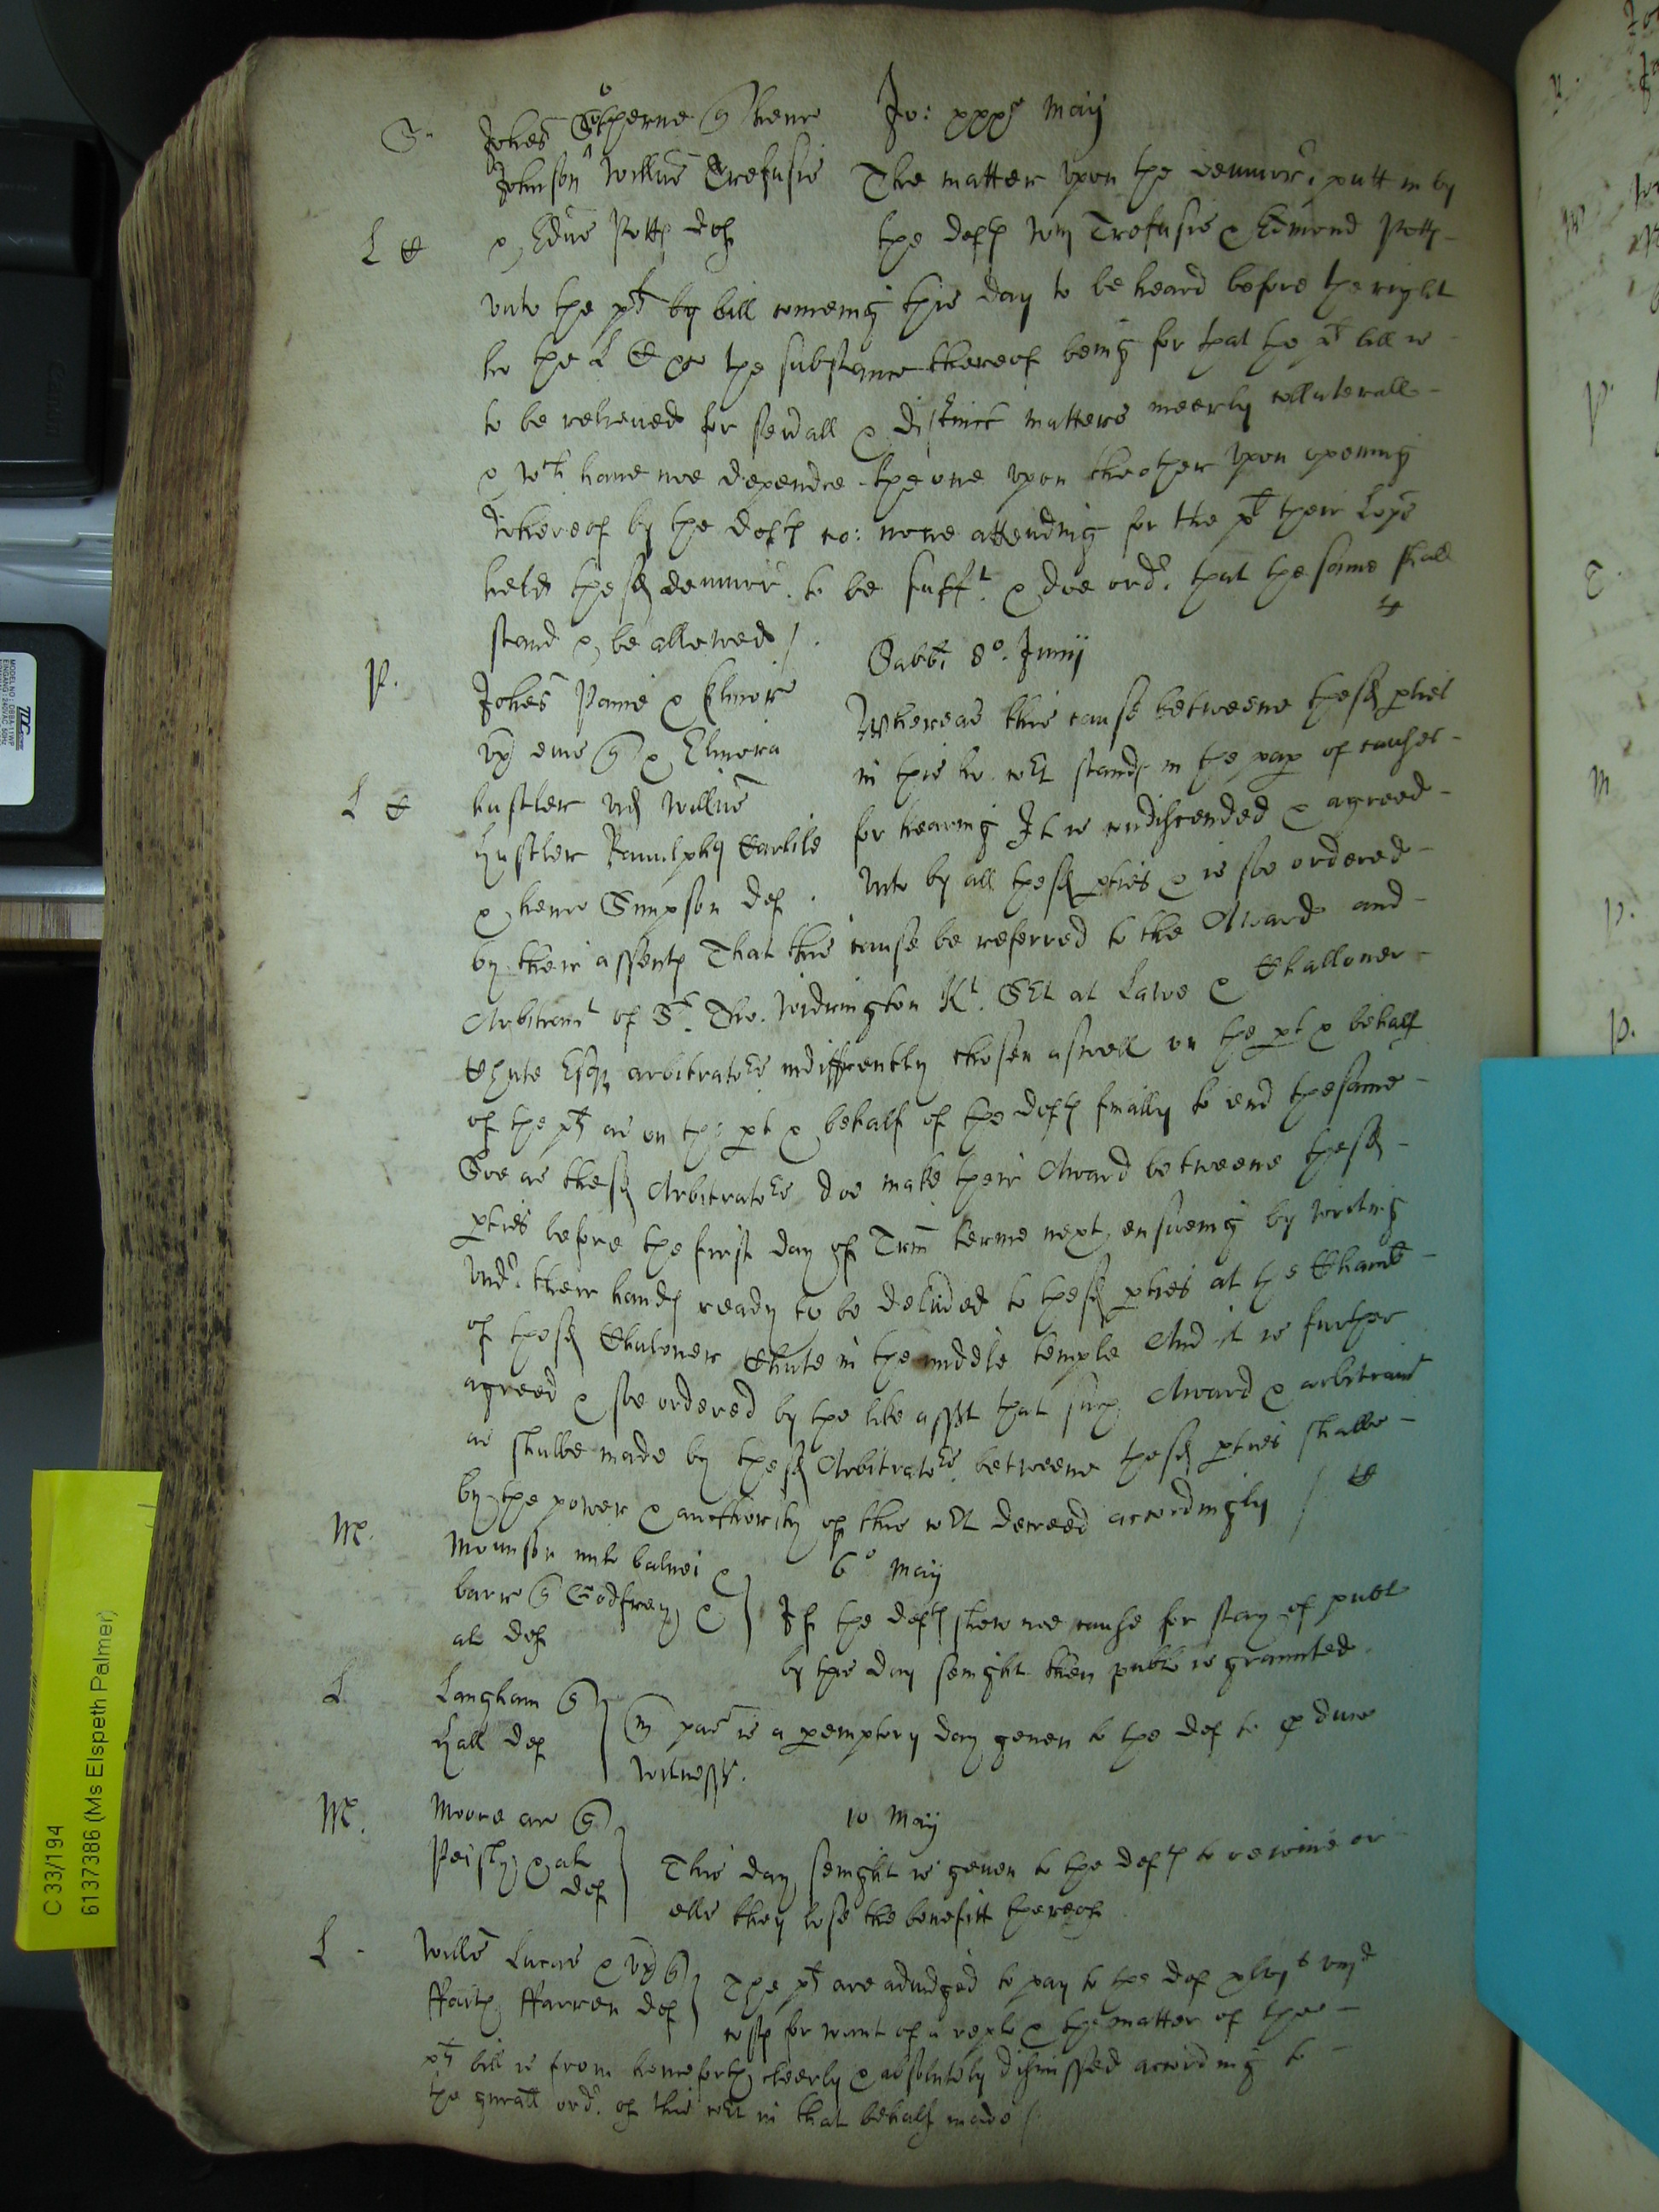 S. Johes Sotherne q Henr Jo: xxx° May
Johnson Willus Trefusis The matter upon the demurr: putt in by
L C & Edus Potts def the defts Wm Trefusis & Edmond Potts
unto the plts by bill comeing this day to be heard before the right
ho the L C &c the substance thereof being for that the plts bill is
to be releived for severall & distinct matters meerly collaterall
& wch have noe dependce the one upon the other upon opening
whereof by the defts co: none attending for the plt their Lops
held the sd demurr. to be suff.t & doe ord. that the same shall
stand & be allowed /.
P. Sabbi 8° Junij
Johes Paine & Elinor Whereas this cause betweene the sd pties
ux eius q & Elinora in this ho. co.rt stands in the pap of causes
L C hustler vid Willus for hearing It is condiscended & agreed
hustler Ranulphus Carlile unto by all the sd pties & is soe ordered
& henr Simpson def.
by their assents That this cause be referred to the Award and
Arbitramt of Sr. Tho. Widrington Kt. Srt at Lawe & Challoner
Chute Esqr arbitrators indifferently chosen aswell on the pt & behalf
of the plts as on the pt & behalf of the defts finally to end the same
Soe as the sd Arbitrators doe make their Award betweene the sd
pties before the first day of Trin terme next ensueing by writing
und. their hands ready to be delivered to the sd pties at the Chamb
of the sd Chaloner Chute in the middle temple And it is further
agreed & soe ordered by the like asst that such Award & arbitramt
as shalbe made by the sd Arbitrators betweene the sd pties shalbe
by the power & aucthority of this co.rt decreed accordingly /
M. Mounson mil balnei & 6° May
barr q Godfrey & If the defts shew noe cause for stay of publ
al def by this day senight then publ is graunted
L. Langham q pas is a peremptory day geven to the def to pduce
Hall def witness.
M. Moore ar q 10 May
Peisly & al This day senight is geven to the defts to rejoine or
def ells they lose the benefitt thereof
L. Wills Lucas & ux q The plts are adiudged to pay to the def
ffaith ffarrer def costs for want of a repl & the matter of the
plts bill is from henceforth cleerly & absolutely dismissed according to
the gnrall ord. of this co.rt in that behalf made /.
C 33/194
6137386 (Ms Elspeth Palmer)
TDC
MODEL NO : DBBA11WP
Canon